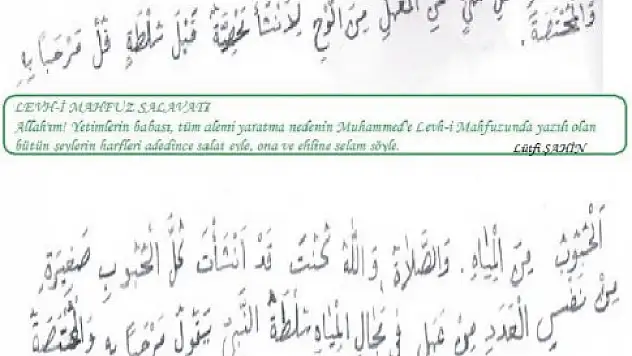 وَالْمُخْتَصَّةُ.
مِنَ الْوَحْيِ لِأَنْشَأَ تَحِيَّةً قَبْلَ سُلْطَةٍ قُلْ مَرْحَبًا بِهِ
LEVH-İ MAHFUZ SALAVATI
Allah'ım! Yetimlerin babası, tüm alemi yaratma nedenin Muhammed'e Levh-i Mahfuzunda yazılı olan
bütün şeylerin harfleri adedince salat eyle, ona ve ehline selam söyle.
Lütfi ŞAHİN
اَلْحُبُوبُ مِنَ الْمِيَاهِ. وَالصَّلَاةُ وَاللّٰهِ كُنْتَ قَدْ اَنْشَأْتَ كُلَّ الْحُبُوبِ صَغِيرَةٍ
مِنْ نَفْسِ الْعَدَدِ مِنْ عَمَلٍ فِي مَجَالِ الْمِيَاهِ سُلْطَةُ النَّبِيِّ يَقُولُ مَرْحَبًا بِهِ وَالْمُخْتَصَّةُ